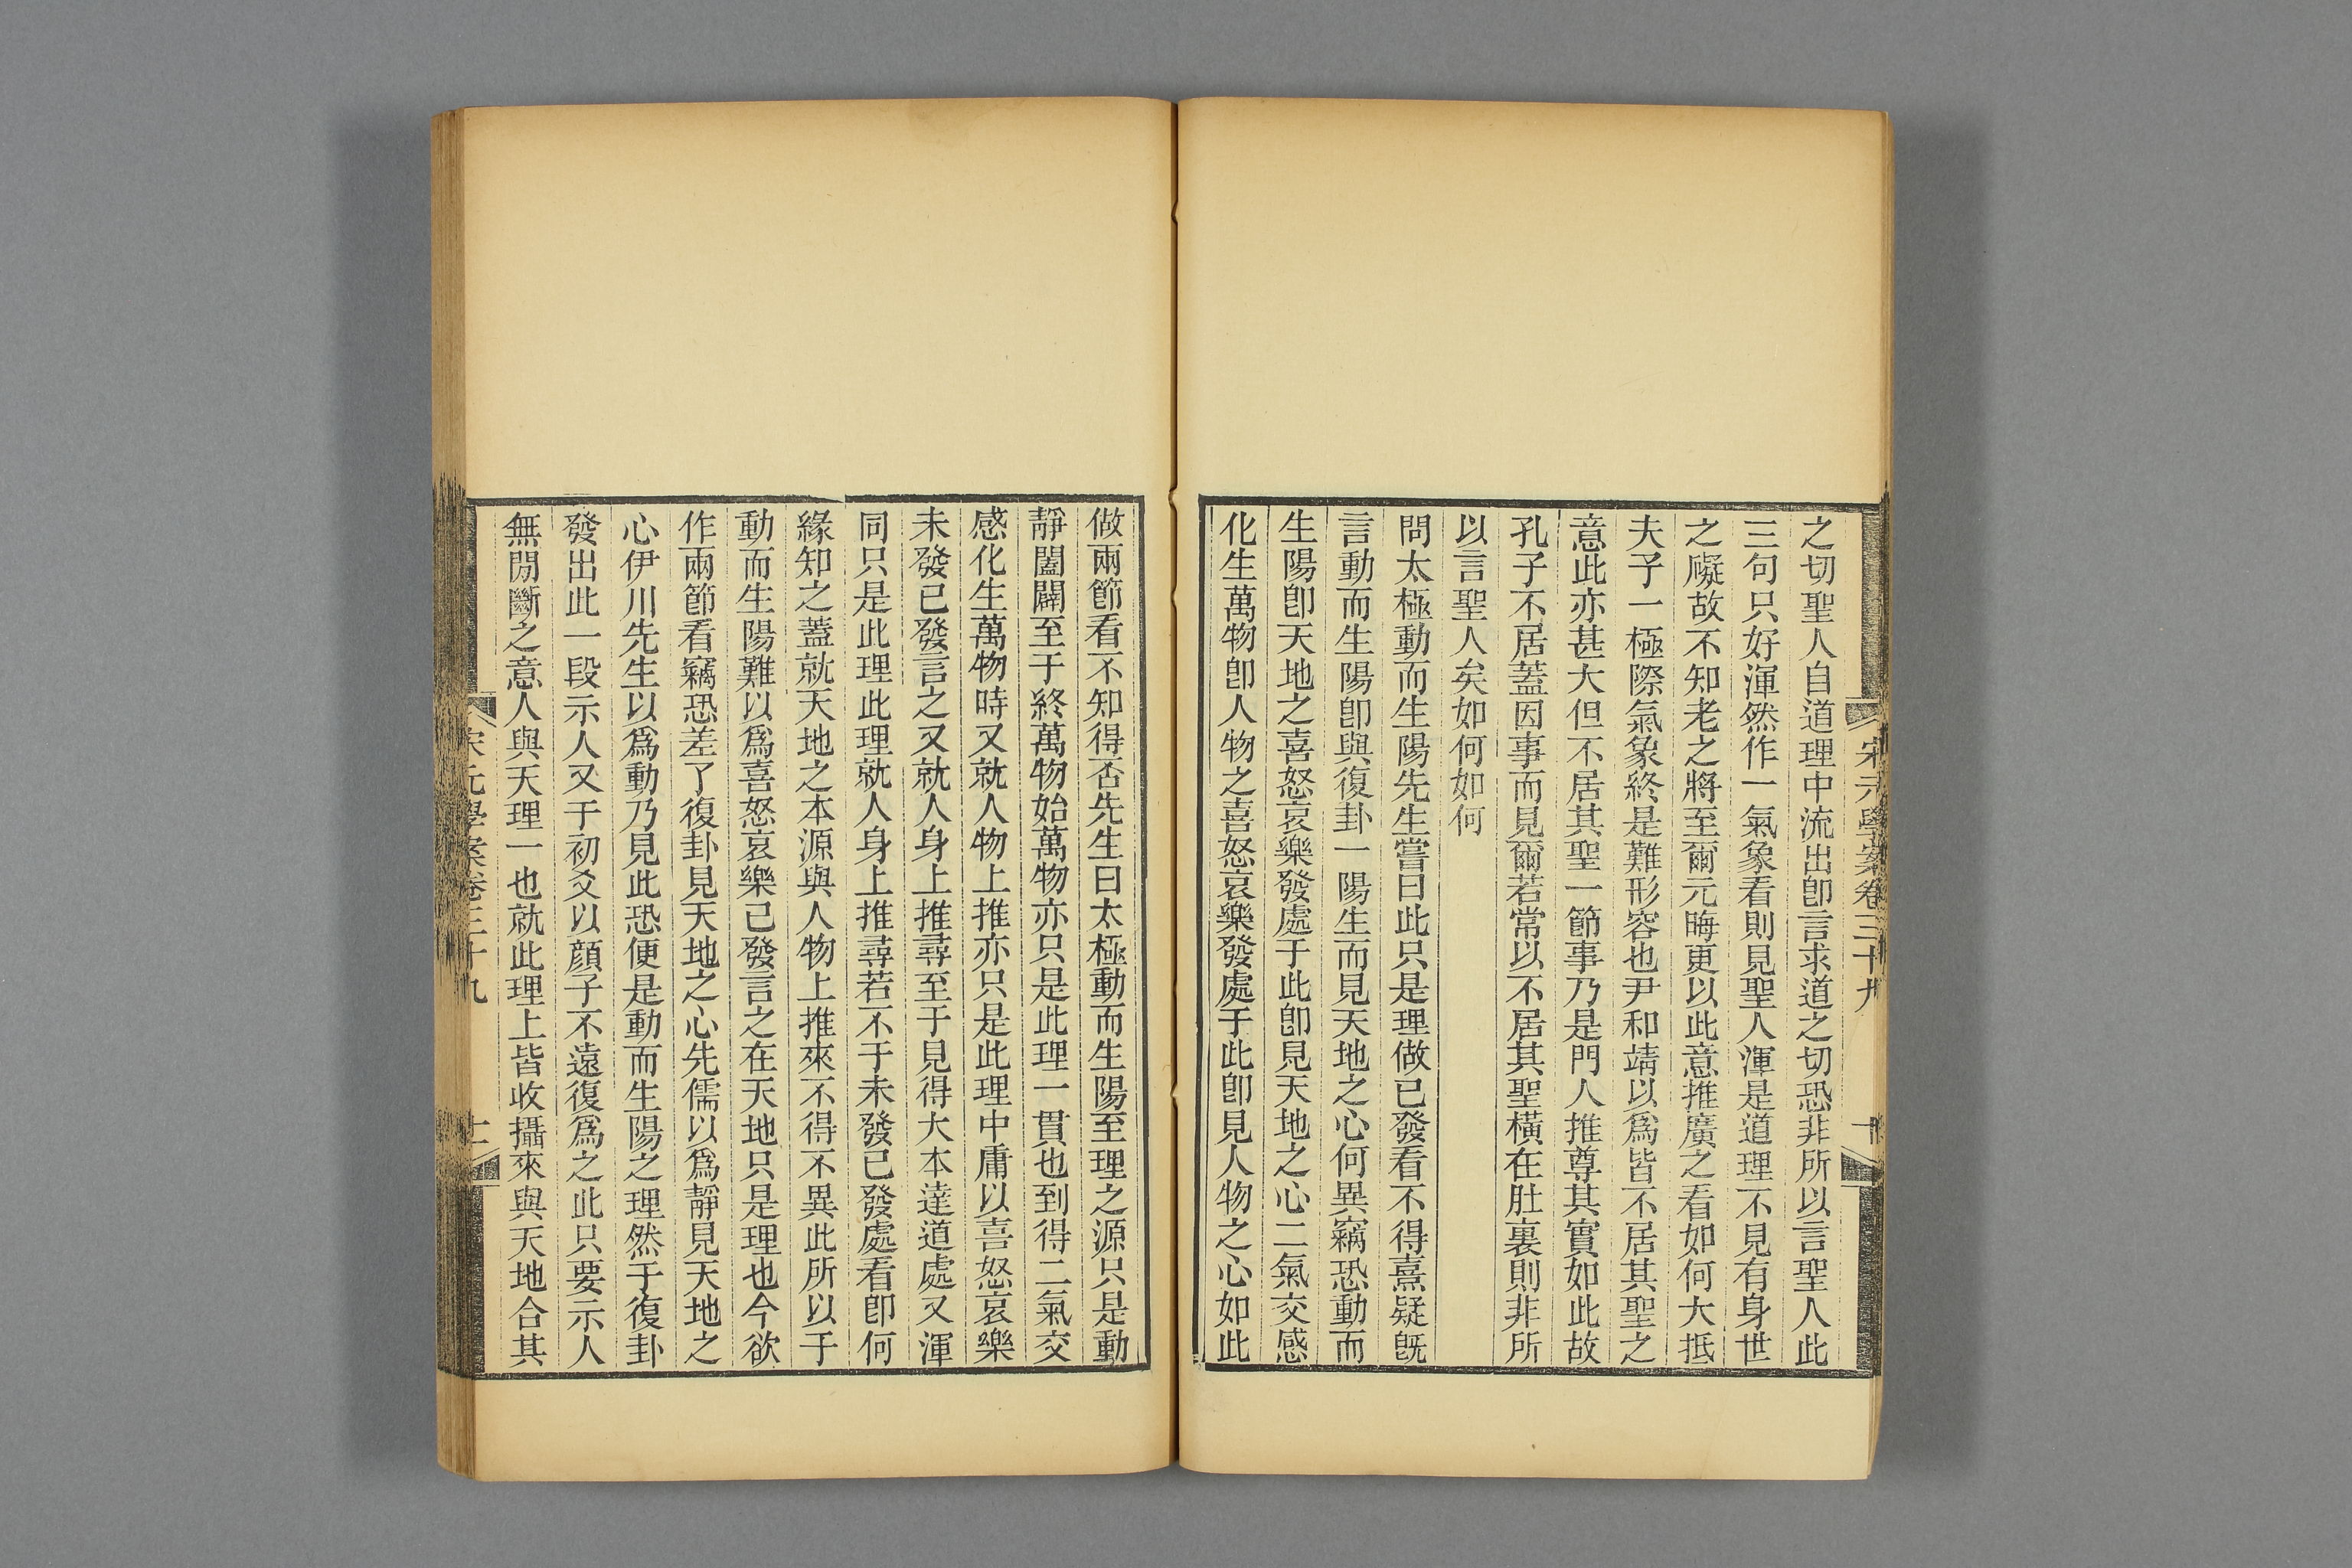 宋元學案卷三十九
十
之切聖人自道理中流出卽言求道之切恐非所以言聖人此
三句只好渾然作一氣象看則見聖人渾是道理不見有身世
之礙故不知老之將至爾元晦更以此意推廣之看如何大抵
夫子一極際氣象終是難形容也尹和靖以爲皆不居其聖之
意此亦甚大但不居其聖一節事乃是門人推尊其實如此故
孔子不居蓋因事而見爾若常以不居其聖橫在肚裏則非所
以言聖人矣如何如何
問太極動而生陽先生嘗曰此只是理做已發看不得熹疑旣
言動而生陽卽與復卦一陽生而見天地之心何異竊恐動而
生陽卽天地之喜怒哀樂發處于此卽見天地之心二氣交感
化生萬物卽人物之喜怒哀樂發處于此卽見人物之心如此
做兩節看不知得否先生曰太極動而生陽至理之源只是動
靜闔闢至于終萬物始萬物亦只是此理一貫也到得二氣交
感化生萬物時又就人物上推亦只是此理中庸以喜怒哀樂
未發已發言之又就人身上推尋至于見得大本達道處又渾
同只是此理此理就人身上推尋若不于未發已發處看卽何
緣知之蓋就天地之本源與人物上推來不得不異此所以于
動而生陽難以爲喜怒哀樂已發言之在天地只是理也今欲
作兩節看竊恐差了復卦見天地之心先儒以爲靜見天地之
心伊川先生以爲動乃見此恐便是動而生陽之理然于復卦
發出此一段示人又于初爻以顏子不遠復爲之此只要示人
無閒斷之意人與天理一也就此理上皆收攝來與天地合其
宋元學案卷三十九
十一